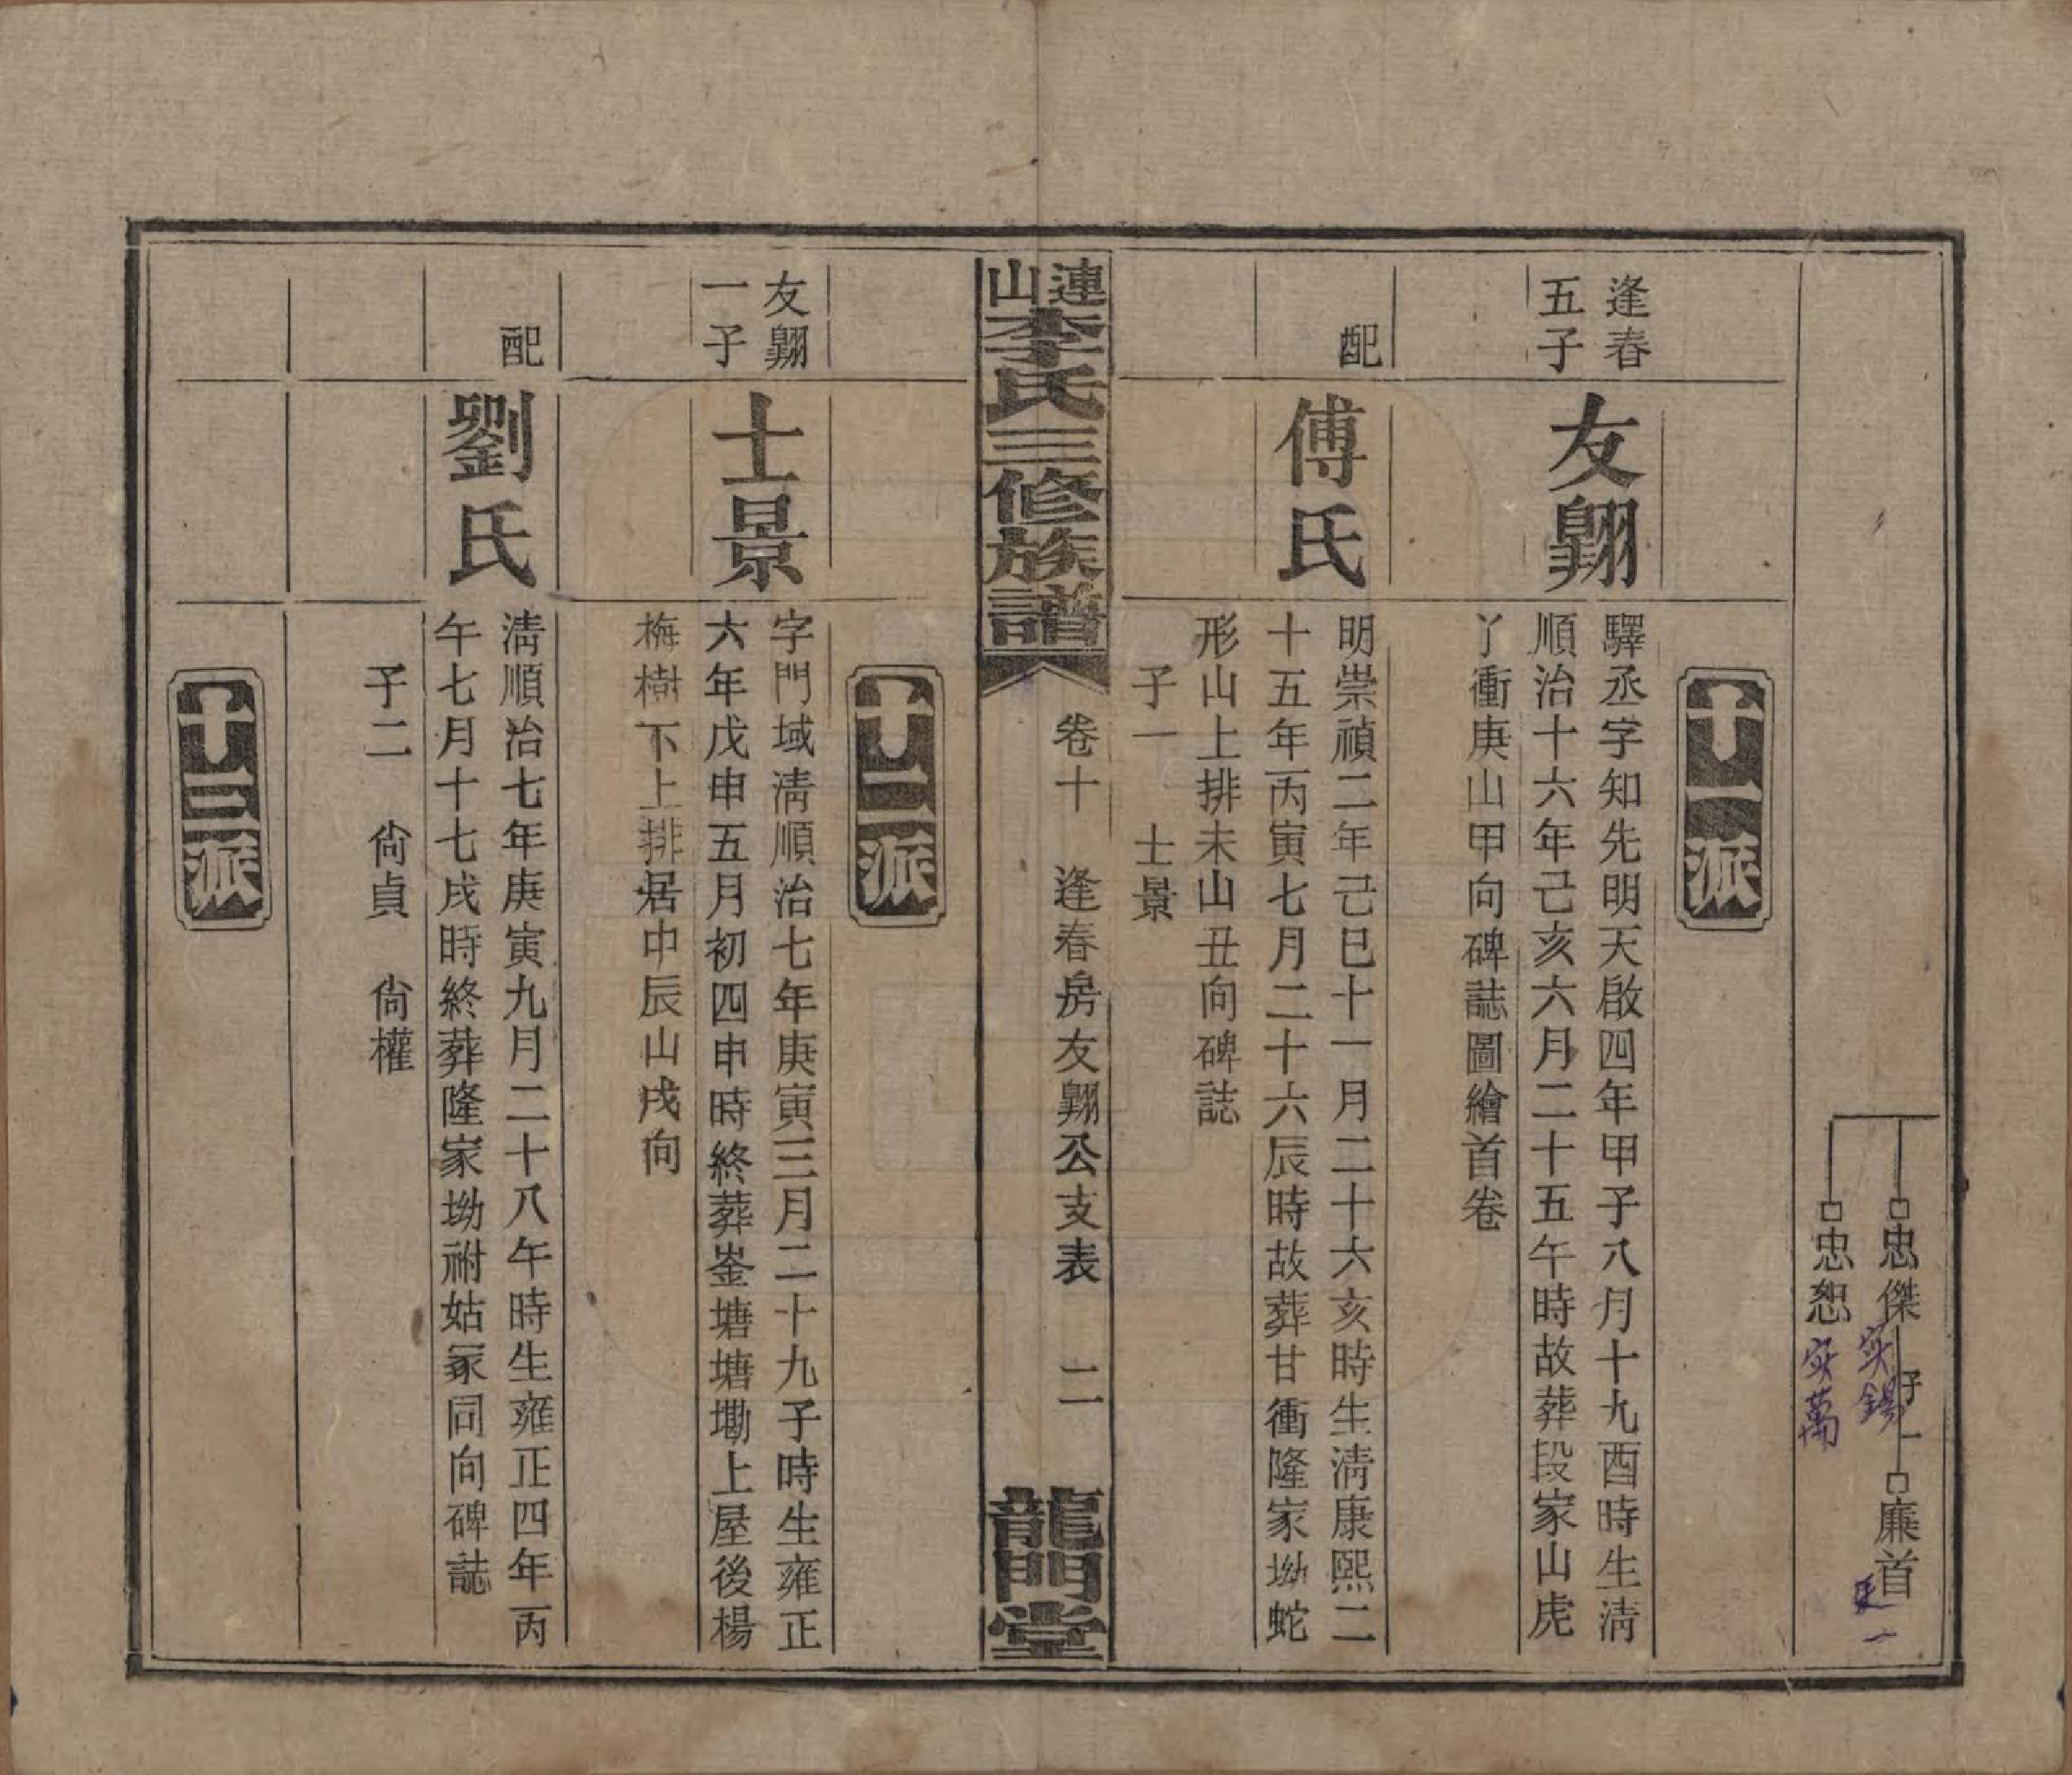 忠傑
子一
廉首
忠恕
实錫
实萬
十一派
逢春
五子
友翺
驛丞字知先明天啟四年甲子八月十九酉時生清
順治十六年己亥六月二十五午時故葬段家山虎
丫衝庚山甲向碑誌圖繪首卷
配
傅氏
明崇禎二年己巳十一月二十六亥時生清康熙二
十五年丙寅七月二十六辰時故葬甘衝隆家坳蛇
形山上排未山丑向碑誌
子一 士景
連山李氏三修族譜
卷十 逢春房友翺公支表 二
龍門堂
十二派
友翺
一子
士景
字門域清順治七年庚寅三月二十九子時生雍正
六年戊申五月初四申時終葬崟塘塘墈上屋後楊
梅樹下上排居中辰山戌向
配
劉氏
清順治七年庚寅九月二十八午時生雍正四年丙
午七月十七戌時終葬隆家坳祔姑冢同向碑誌
子二 尙貞 尙權
十三派